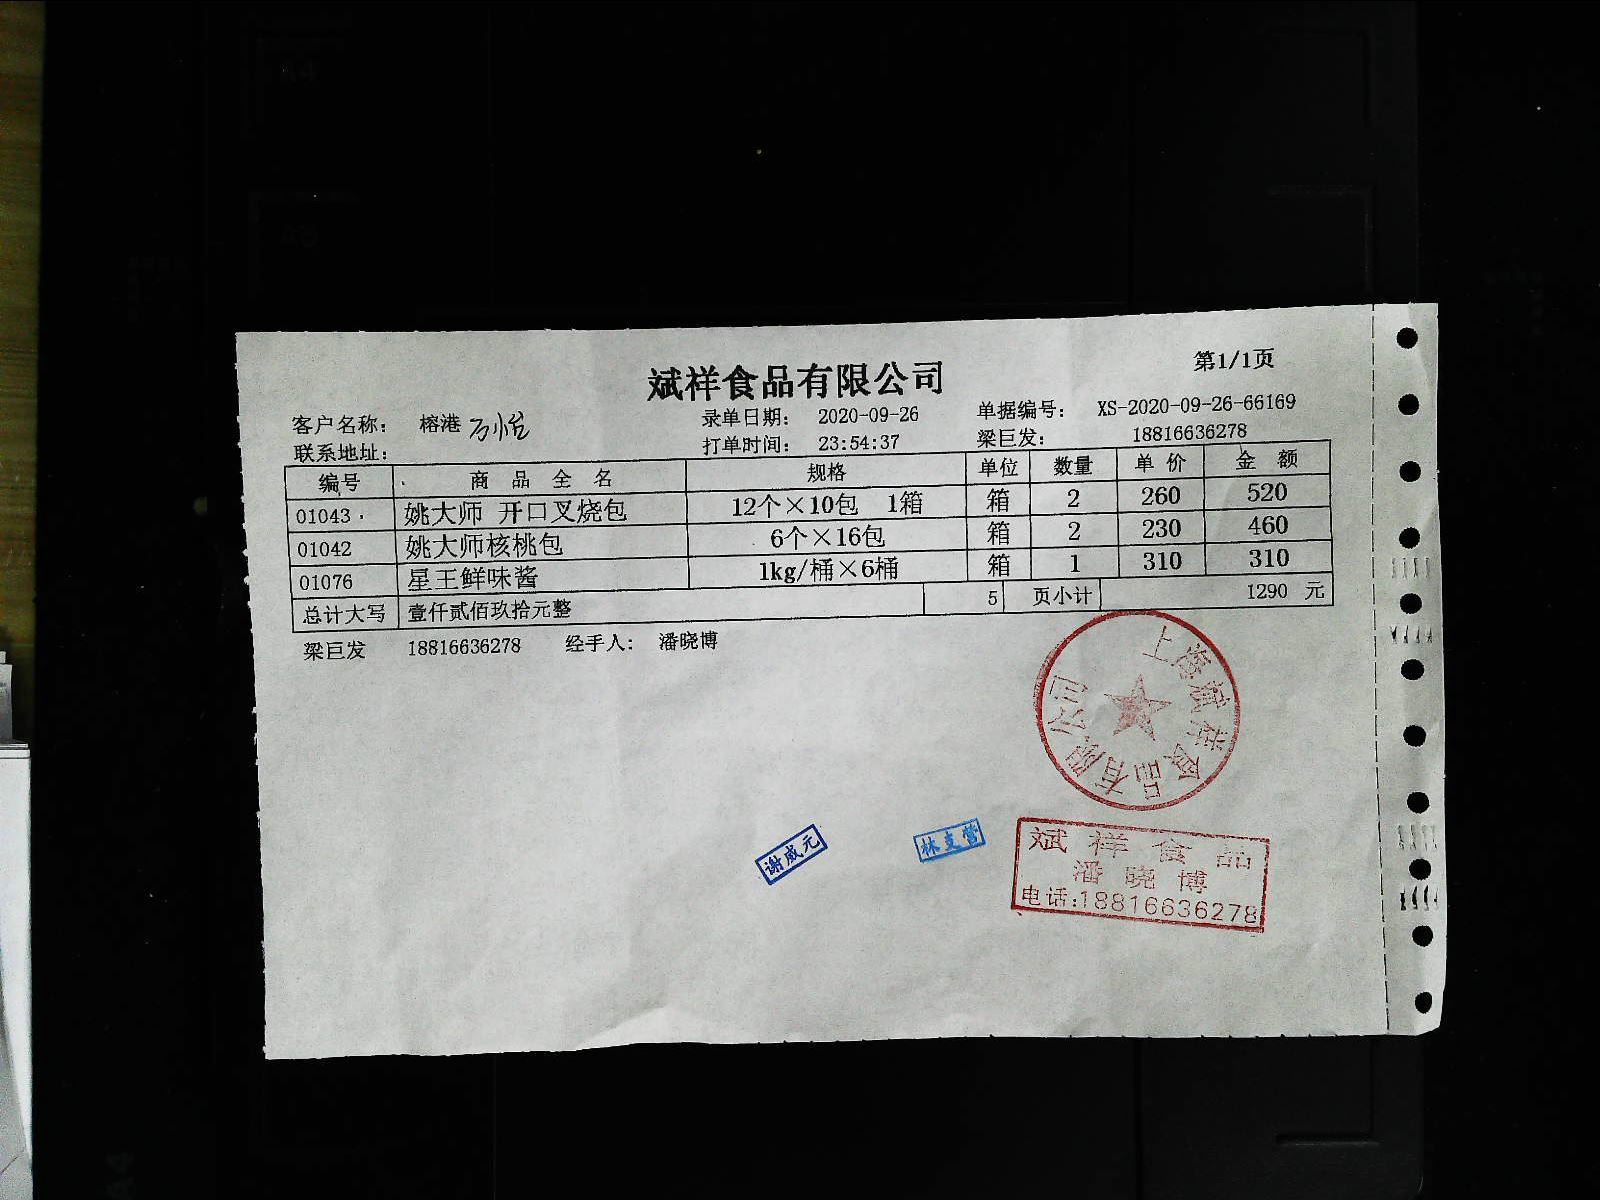 斌祥食品有限公司
第1/1页
客户名称： 榕港 万悦 录单日期： 2020-09-26 单据编号： XS-2020-09-26-66169
联系地址： 打单时间： 23:54:37 梁巨发： 18816636278
编号 商品全名 规格 单位 数量 单价 金额
01043 姚大师 开口叉烧包 12个×10包 1箱 箱 2 260 520
01042 姚大师核桃包 6个×16包 箱 2 230 460
01076 星王鲜味酱 1kg/桶×6桶 箱 1 310 310
总计大写 壹仟贰佰玖拾元整 5 页小计 1290 元
梁巨发 18816636278 经手人： 潘晓博
上海斌祥食品有限公司
谢威元
林支营
斌祥食品
潘晓博
电话:18816636278